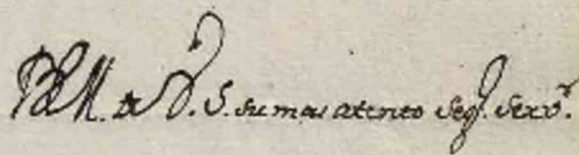 BLM. de V. S. su mas atento seg. serv.r